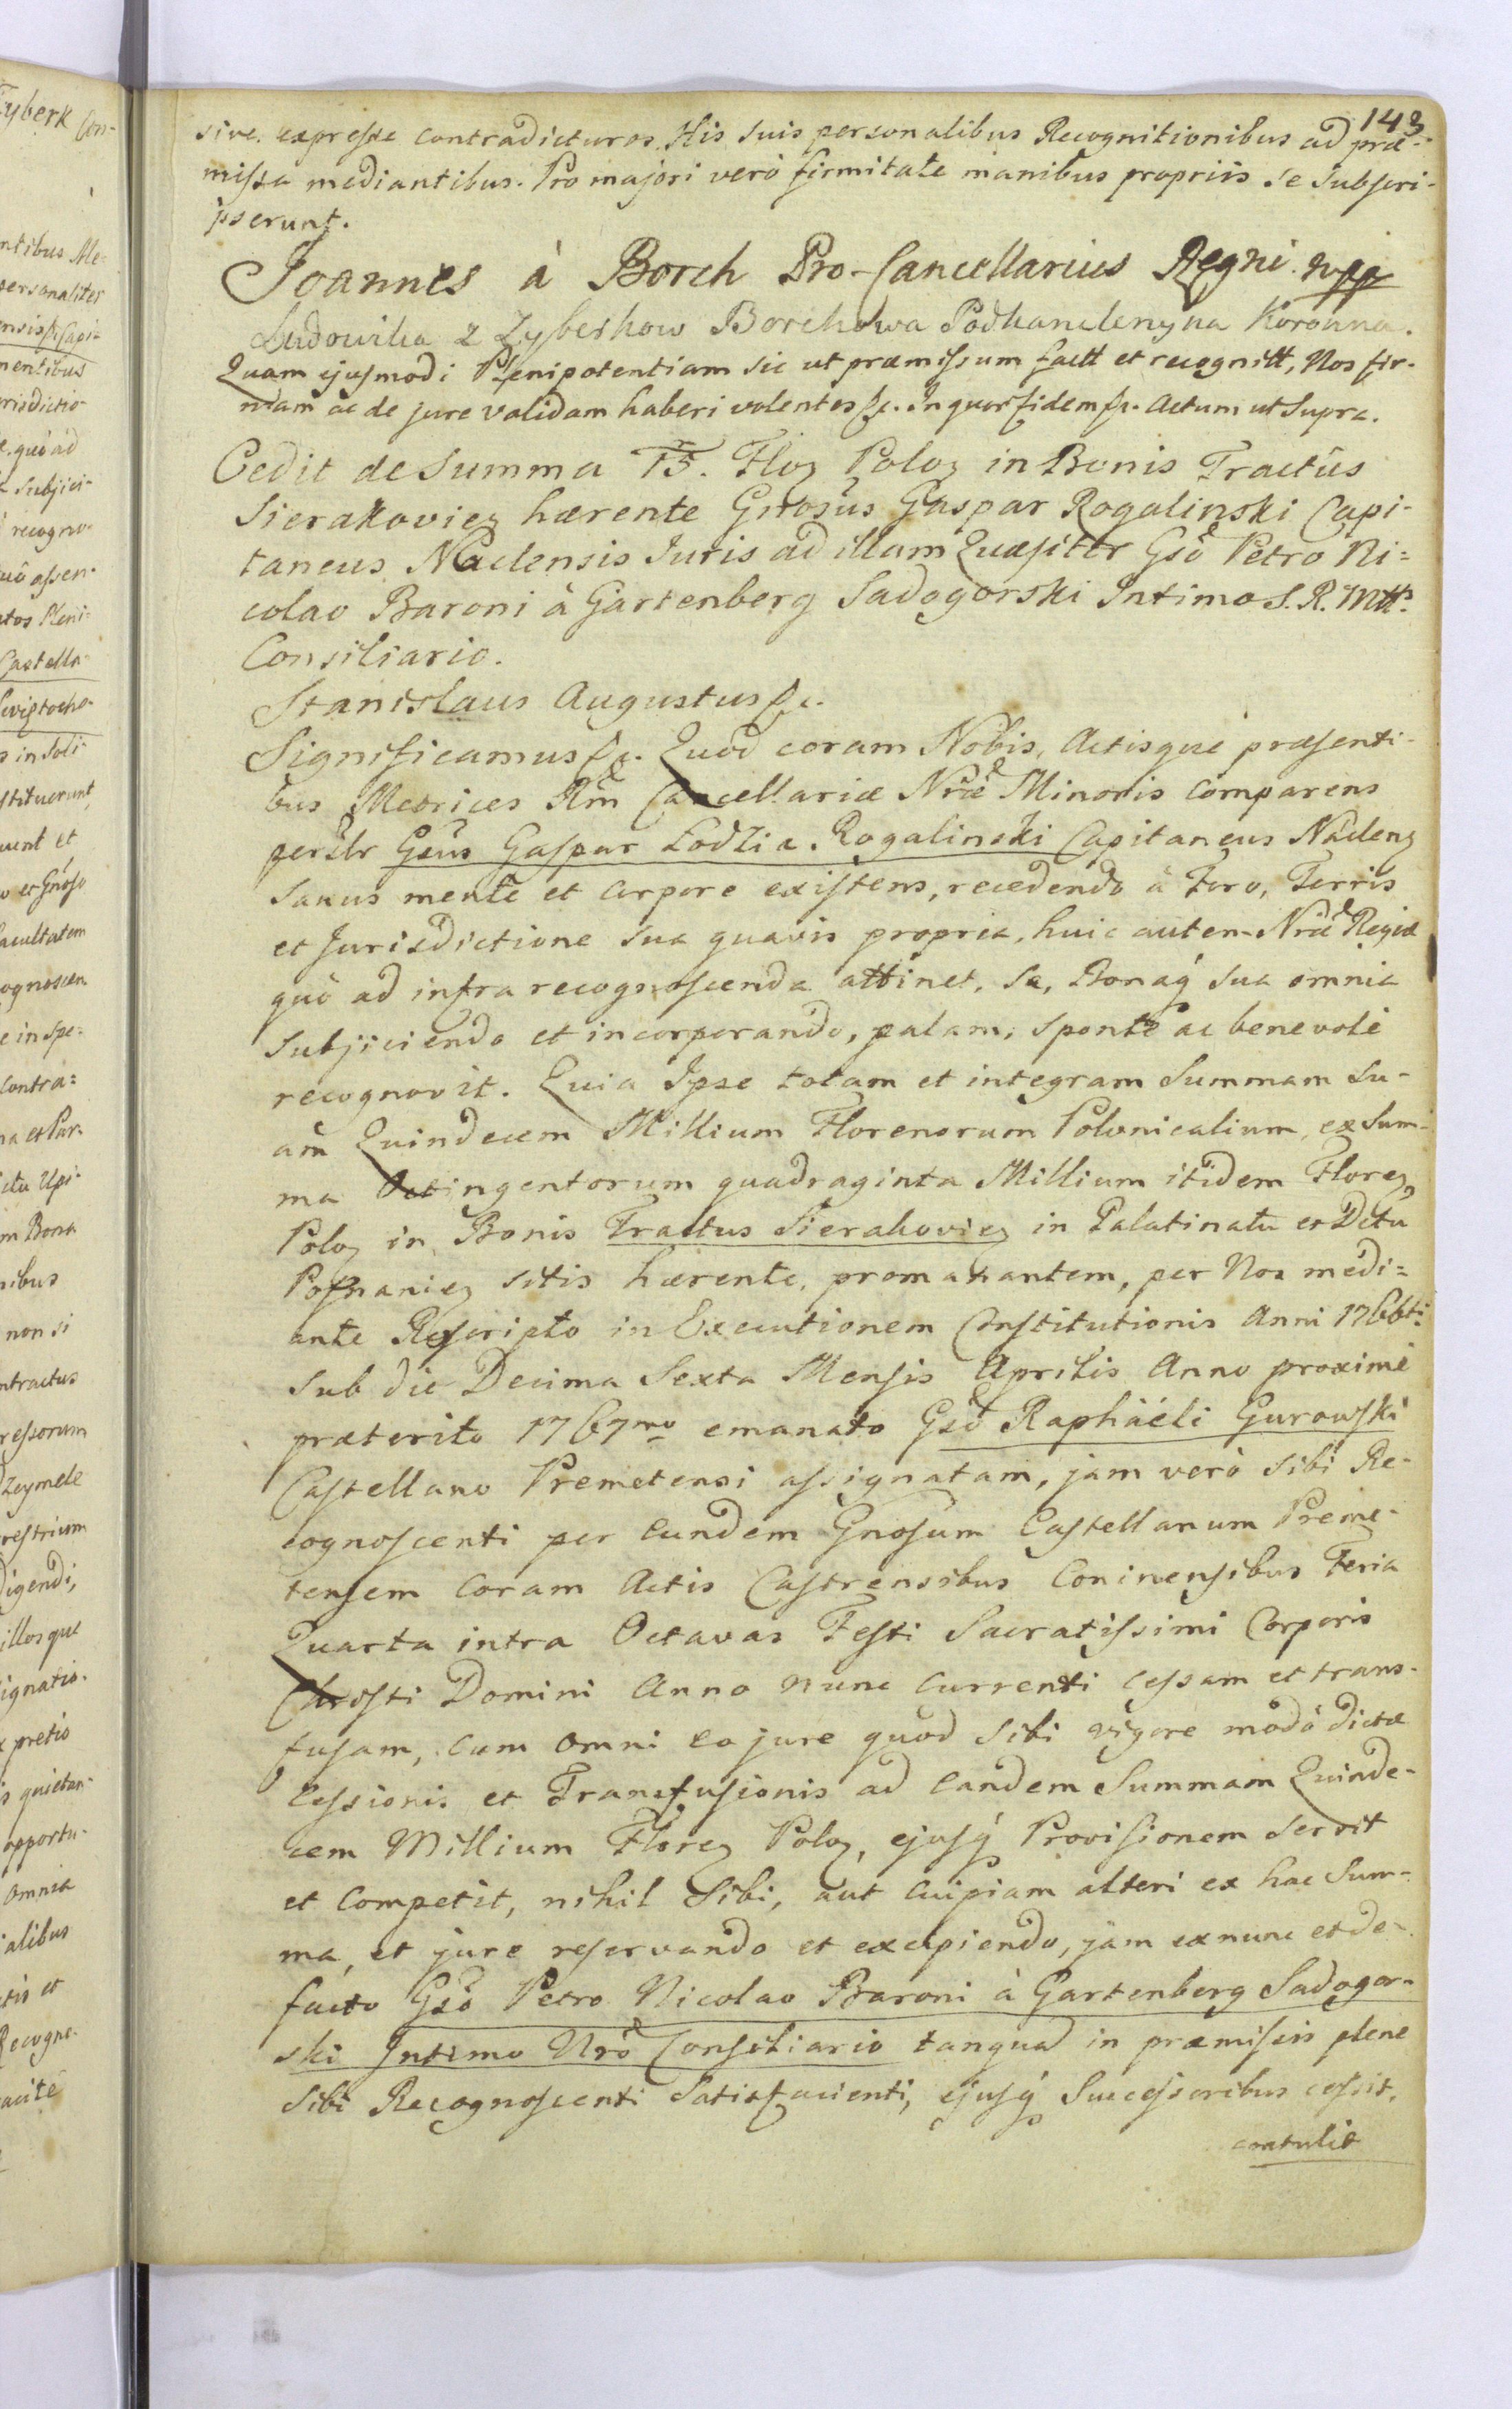 143
sive. expresse contradicturos. His suis personalibus Recognitionibus ad præ-
missa mediantibus. Pro majori verò firmitate manibus propriis se subscri-
pserunt.
Joannes à Borch Pro-Cancellarius Regni. mpp
Ludowika z Zyberkow Borchowa Podkanclerzyna Koronna.
Quam ejusmodi Plenipotentiam sic ut præmissum factt et recognitt, Nos fir-
mam ac de jure validam haberi volentes &c. In quor fidem &c. Actum ut Supra.
Cedit de Summa 15. Floz Poloz in Bonis Tractûs
Sierakoviez hærente Gnosus Gaspar Rogalinski Capi-
taneus Naclensis Juris ad illam Quæsitor Gso Petro Ni=
colao Baroni à Gartenberg Sadogorski Intimo S. R. Mtts
Consiliario.
Stanislaus Augustus &c.
Significamus &c. Quod coram Nobis, Actisque præsenti-
bus Metrices Rni Cancellariæ Nræ Minoris comparens
persltr Gsus Gaspar Lodzia. Rogalinski Capitaneus Naclenz
Sanus mente et corpore existens, recedendo à Foro, Terris
et Jurisdictione sua quavis propria, huic autem Nræ Regiæ
quò ad infra recognoscenda attinet, se, Bonaq sua omnia
subjiciendo et incorporando, palam, sponte ac benevolè
recognovit. Quia Ipse totam et integram Summam su-
am Quindecem Millium Florenorum Polonicalium, ex Sum-
ma Octingentorum quadraginta Millium itidem Florez
Poloz in Bonis Tractus Sierakoviez in Palatinatu et Dctu
Posnaniez sitis hærente, promanantem, per Nos medi=
ante Rescripto in Executionem Constitutionis Anni 1766ti
sub die Decima Sexta Mensis Aprilis Anno proximè
præterito 1767mo emanato Gso Raphäeli Gurowski
Castellano Premetensi assignatam, jam verò sibi Re-
cognoscenti per eundem Gnosum Castellanum Preme-
tensem coram Actis Castrensibus Coninensibus Feria
Quarta intra Octavas Festi Sacratissimi Corporis
Christi Domini Anno nunc currenti cessam et trans-
fusam, cum omni eo jure quod sibi vigore modò dictæ
Cessionis et Transfusionis ad eandem Summam Quinde-
cem Millium Florez Poloz, ejusq Provisionem servit
et competit, nihil sibi, aut cuipiam alteri ex hac Sum-
ma, et jure reservando et excipiendo, jam ex nunc et de-
facto Gso Petro Nicolao Baroni à Gartenberg Sadogor-
ski Intimo Nro Consiliario tanquã in præmissis plene
sibi Recognoscenti Satisfacienti, ejusq Successoribus cessit,
contulit